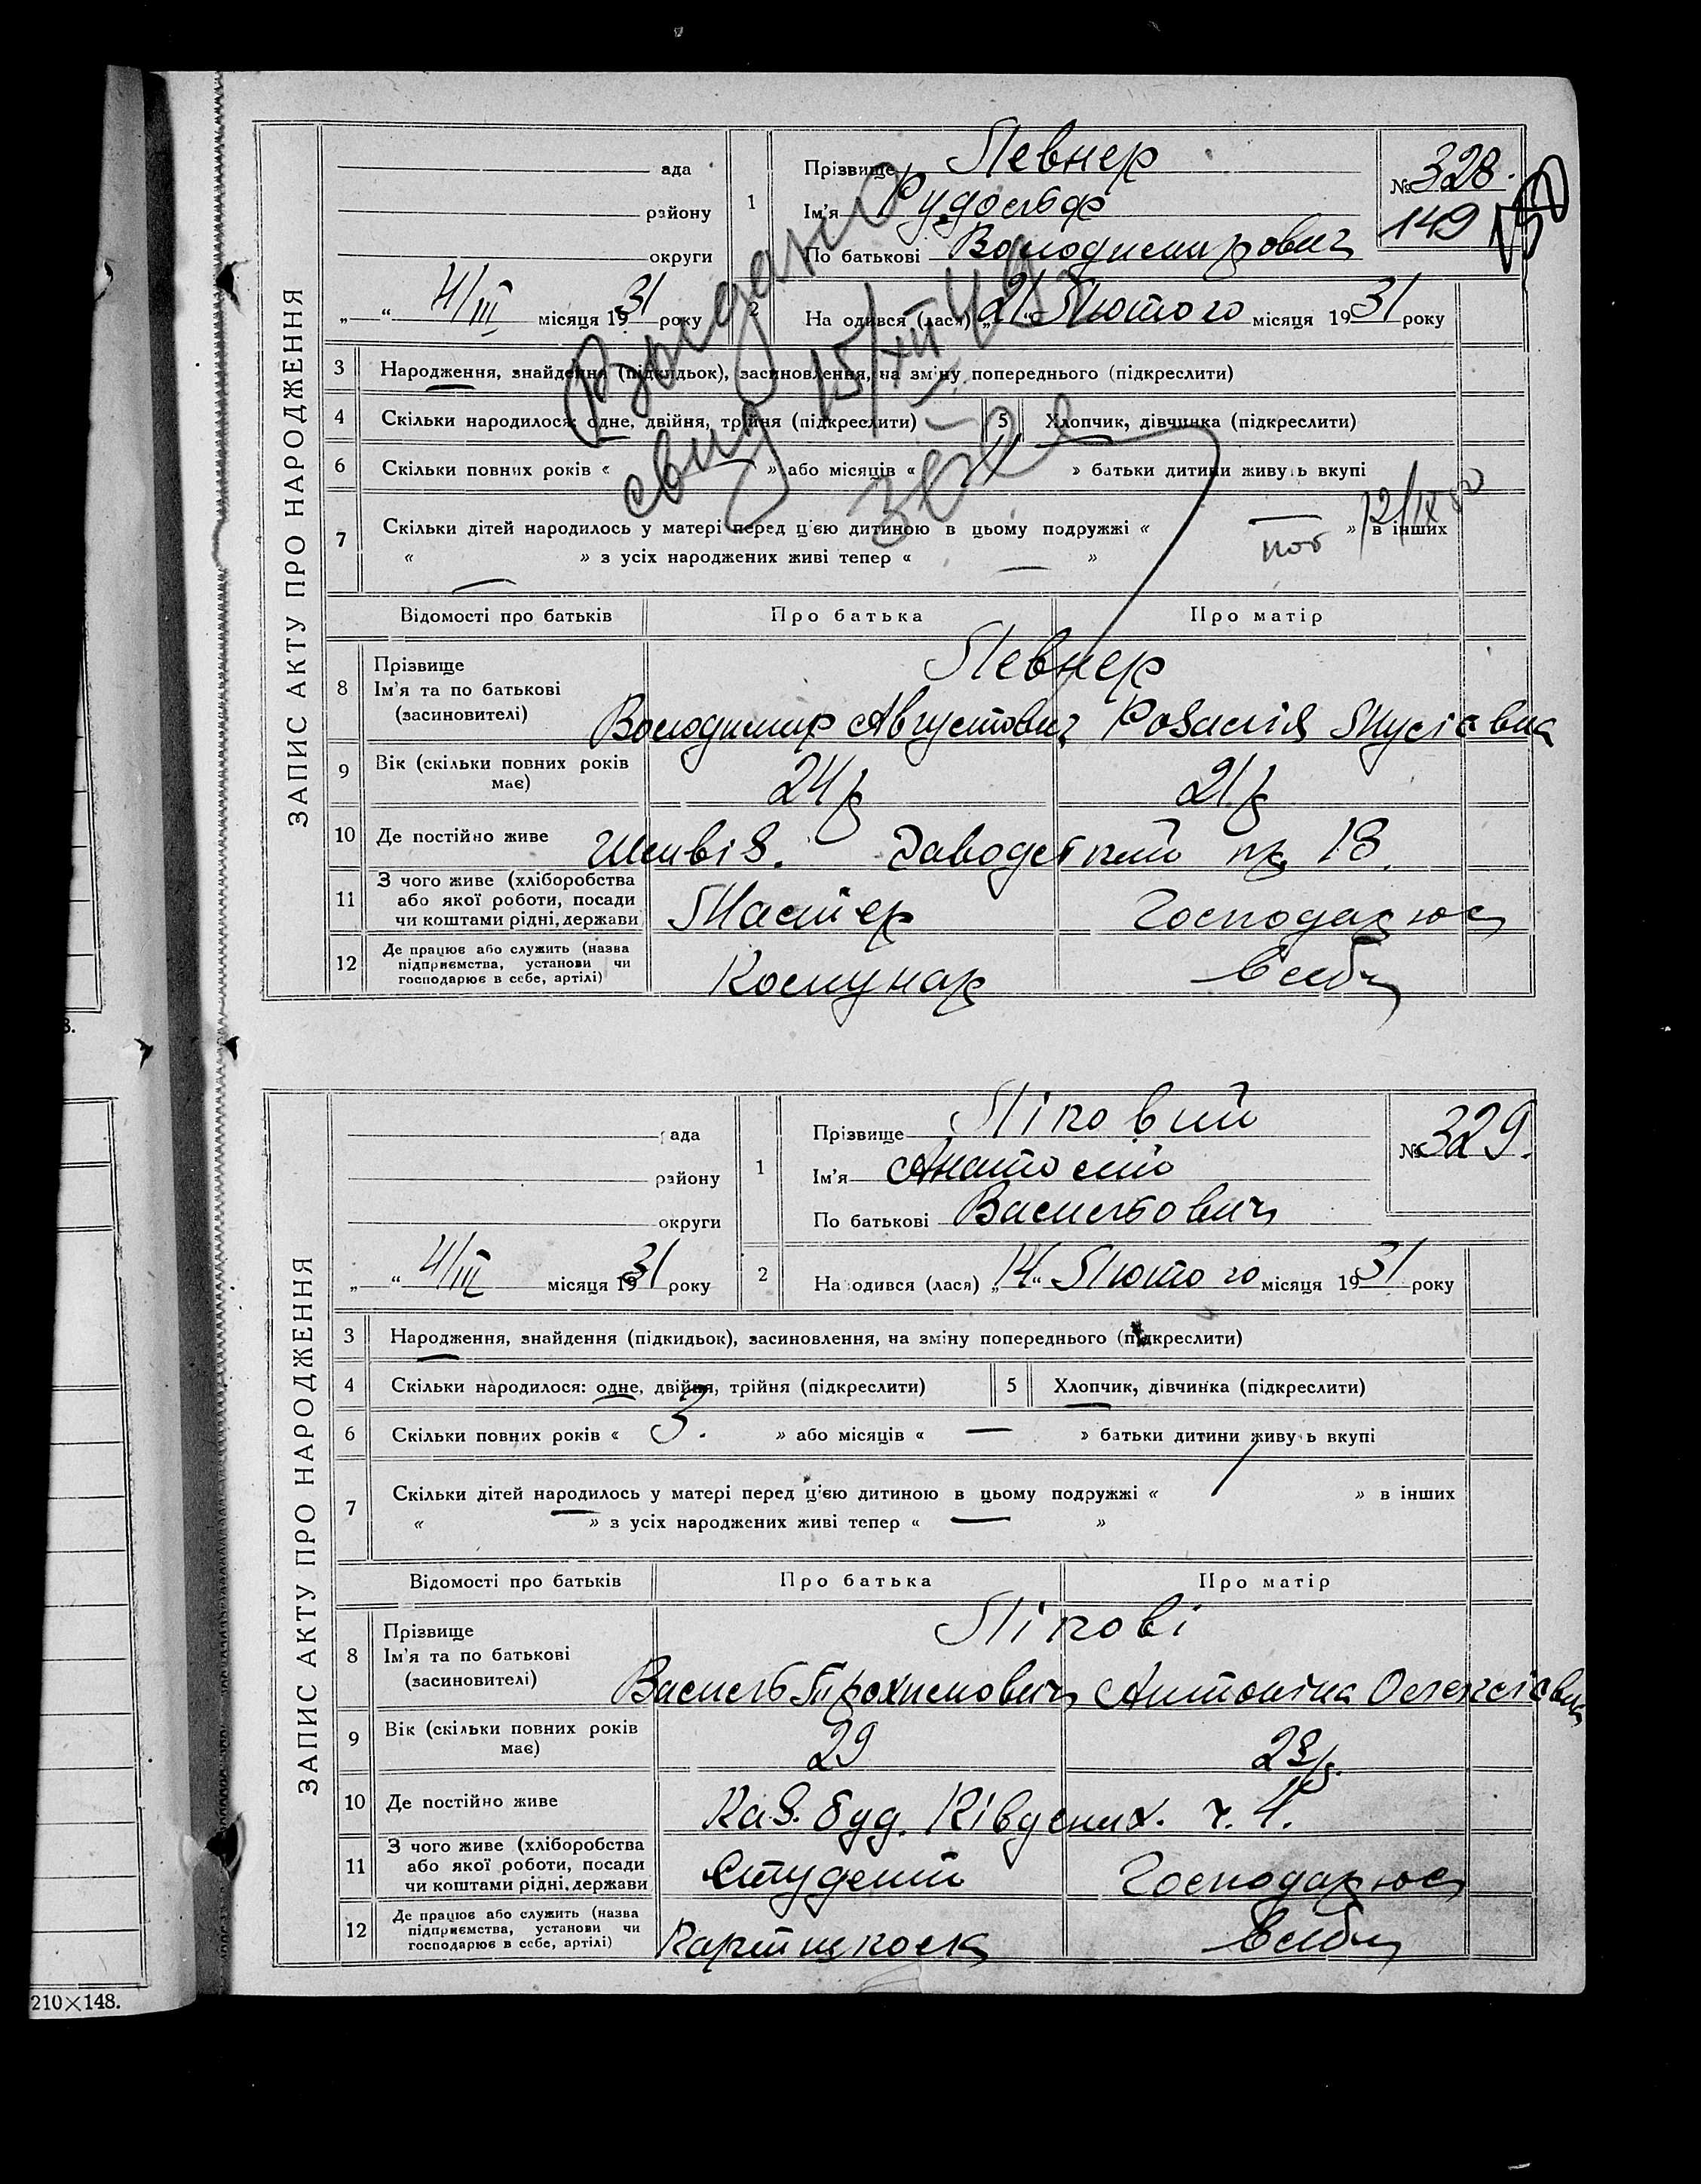 ЗАПИС АКТУ ПРО НАРОДЖЕННЯ
ада
району
округи
„ “ 4/III місяця 1931 року
1
Прізвище Левнер
Ім'я Рудольф
По батькові Володимирович
№ 328.
149
150
2
На одився (лася) „21“ Лютого місяця 1931 року
Выдано
свид
15/XII 49
3
Народження, знайдення (підкидьок), засиновлення, на зміну попереднього (підкреслити)
4
Скільки народилося: одне, двійня, трійня (підкреслити)
5
Хлопчик, дівчинка (підкреслити)
6
Скільки повних років « » або місяців « 11 » батьки дитини живу ь вкупі
7
Скільки дітей народилось у матері перед цією дитиною в цьому подружжі « — » в інших
« — » з усіх народжених живі тепер « — »
12/IX
пов
Відомості про батьків
Про батька
Про матір
8
Прізвище
Ім'я та по батькові
(засиновителі)
Левнер
Володимир Августович
Розалія Мусіївна
9
Вік (скільки повних років
має)
24 р
21 р
10
Де постійно живе
Заводський пр. 18.
11
З чого живе (хліборобства
або якої роботи, посади
чи коштами рідні, держави
Мастер
Господарює
12
Де працює або служить (назва
підприємства, установи чи
господарює в себе, артілі)
Комунар
в себе
ЗАПИС АКТУ ПРО НАРОДЖЕННЯ
ада
району
округи
„ “ 4/III місяця 1931 року
1
Прізвище Ліповий
Ім'я Анатолій
По батькові Васильович
№ 329.
2
На одився (лася) „14“ Лютого місяця 1931 року
3
Народження, знайдення (підкидьок), засиновлення, на зміну попереднього (підкреслити)
4
Скільки народилося: одне, двійня, трійня (підкреслити)
5
Хлопчик, дівчинка (підкреслити)
6
Скільки повних років « 3. » або місяців « — » батьки дитини живу ь вкупі
7
Скільки дітей народилось у матері перед цією дитиною в цьому подружжі « / » в інших
« — » з усіх народжених живі тепер « — »
Відомості про батьків
Про батька
Про матір
8
Прізвище
Ім'я та по батькові
(засиновителі)
Ліпові
Василь Трохимович
Антоніна Олексіївна
9
Вік (скільки повних років
має)
29
23 р.
10
Де постійно живе
Каз. буд. Південих. ч. 4.
11
З чого живе (хліборобства
або якої роботи, посади
чи коштами рідні, держави
Студент
Господарює
12
Де працює або служить (назва
підприємства, установи чи
господарює в себе, артілі)
Партшкола
в себе
210×148.